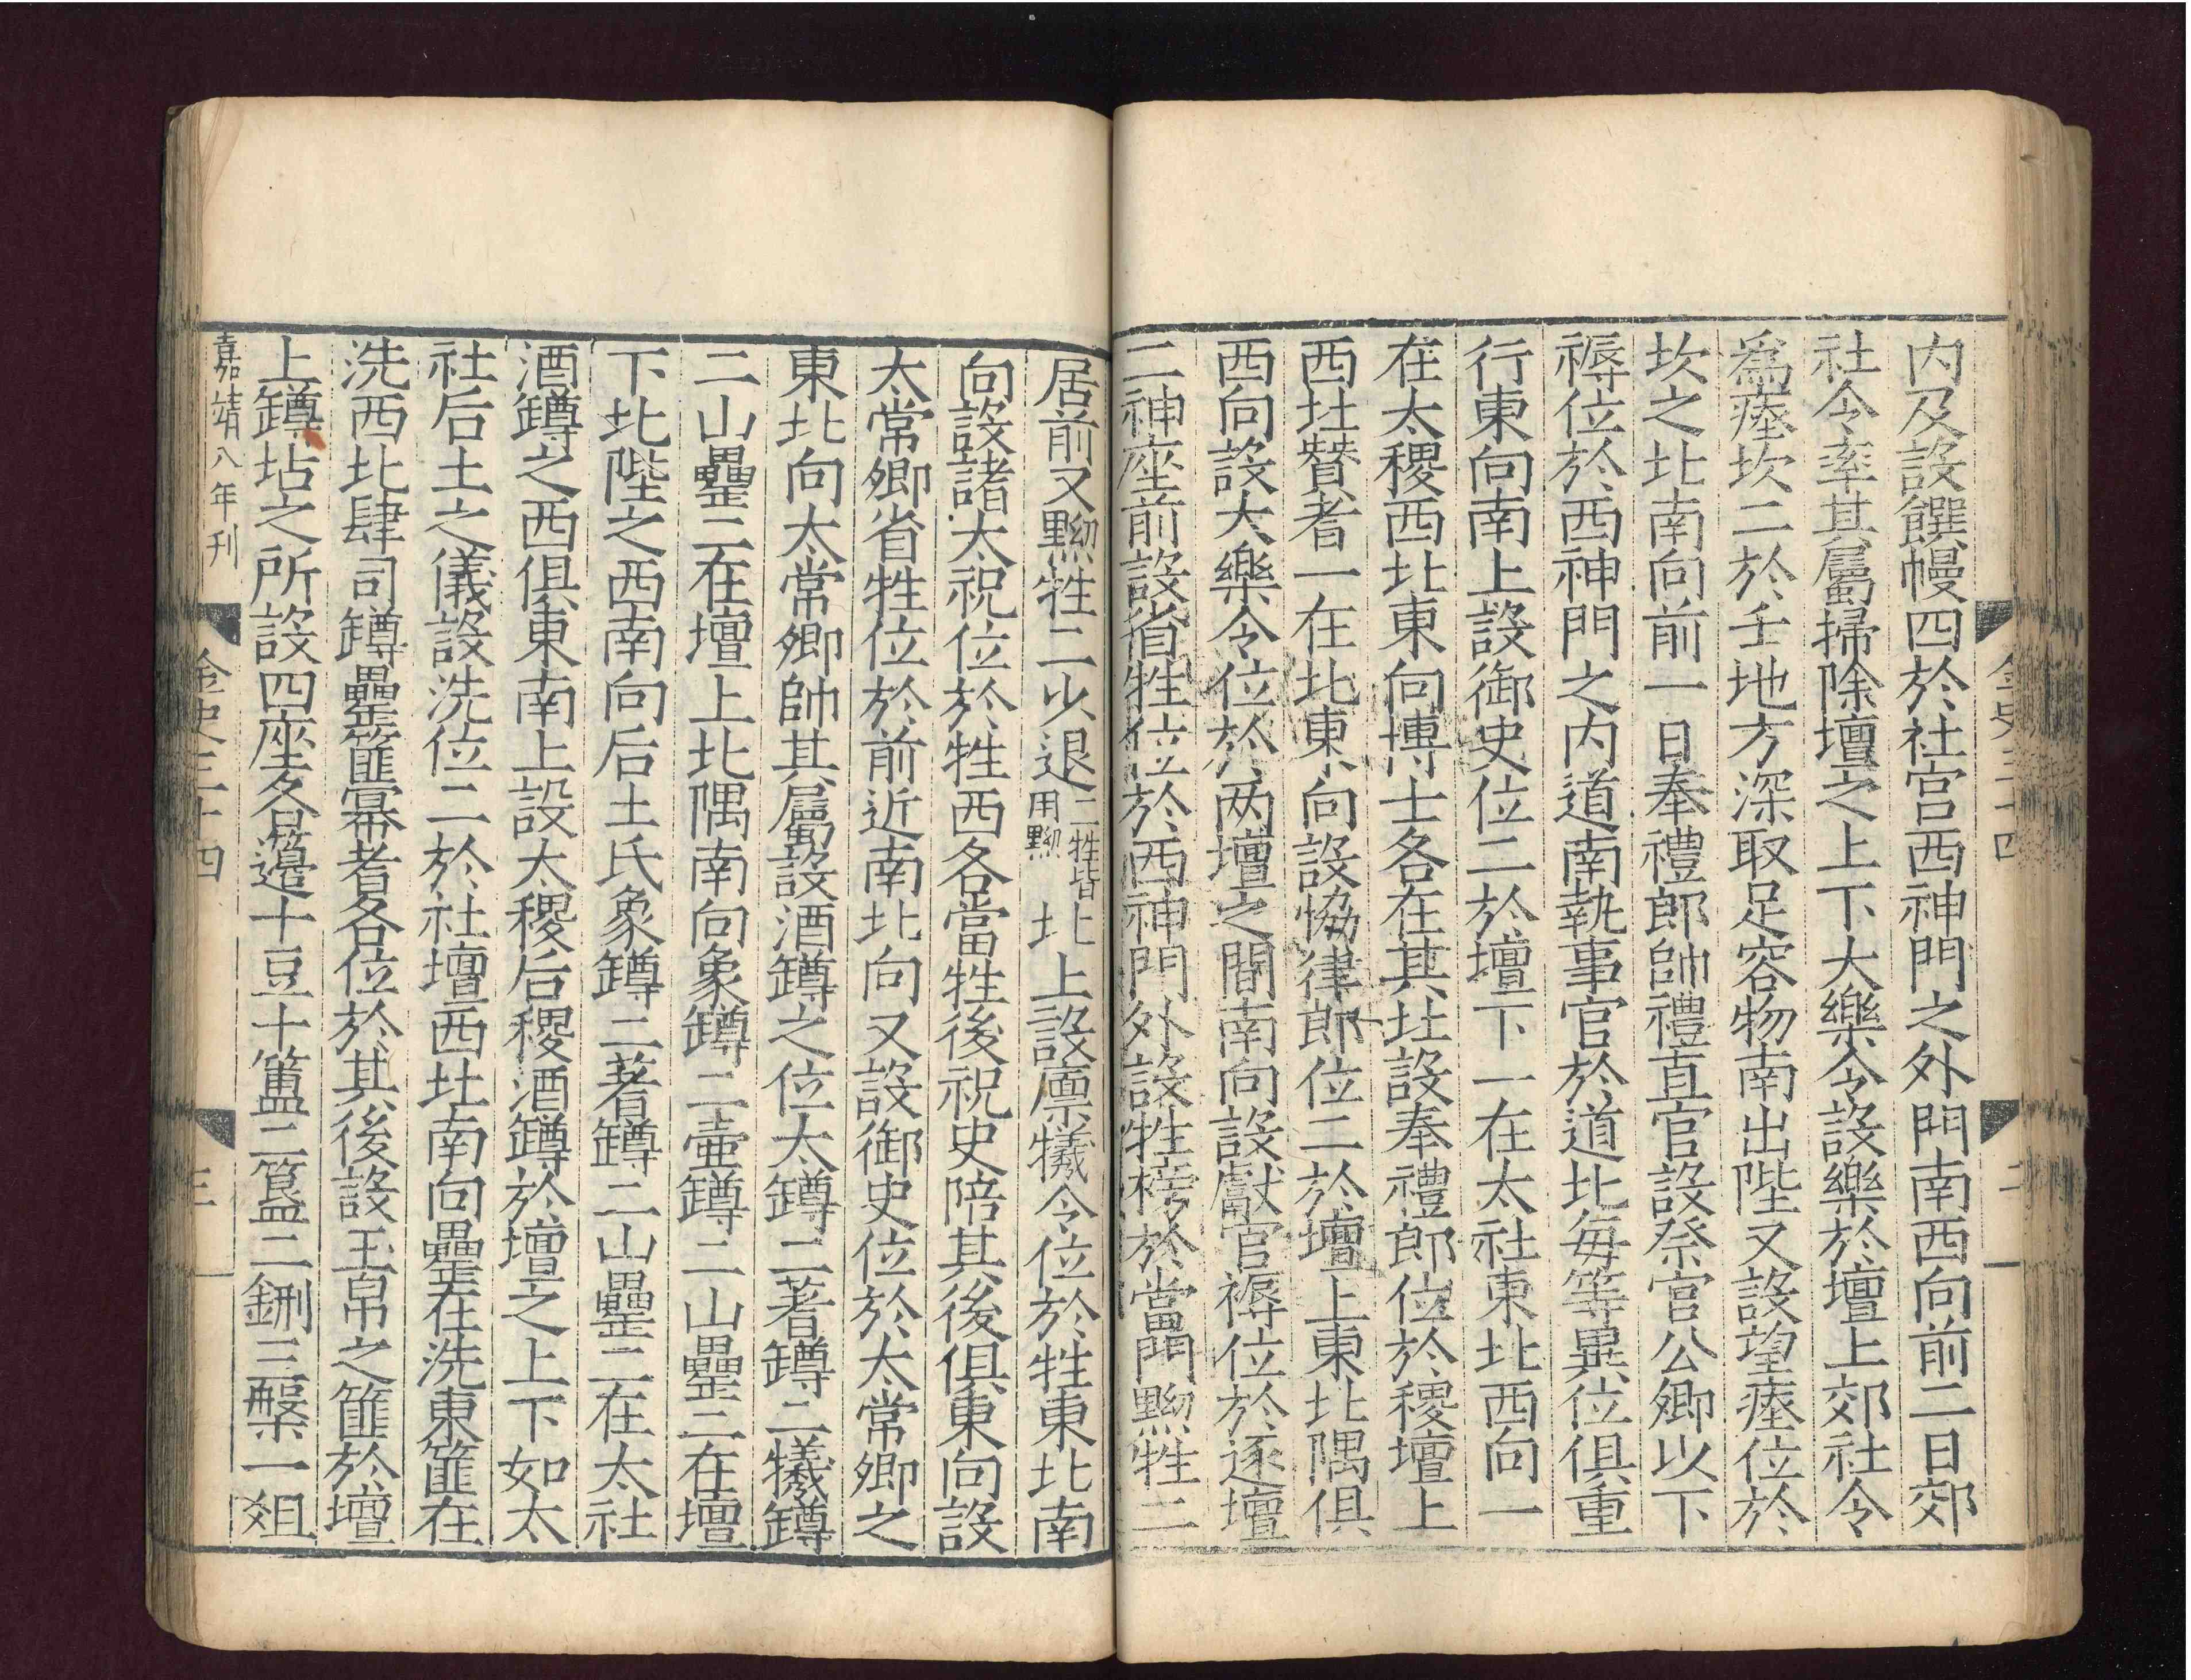 金史三十四
二
内及設饌幔四於社宫西神門之外門南西向前二日郊
社令率其屬掃除壇之上下大樂令設樂於壇上郊社令
爲瘞坎二於壬地方深取足容物南出陛又設望瘞位於
坎之北南向前一日奉禮郎帥禮直官設祭官公卿以下
褥位於西神門之内道南執事官於道北每等異位俱重
行東向南上設御史位二於壇下一在太社東北西向一
在太稷西北東向博士各在其北設奉禮郎位於稷壇上
西北贊者一在北東向設恊律郎位二於壇上東北隅俱
西向設大樂令位於两壇之間南向設獻官褥位於逐壇
二神座前設省牲位於西神門外設牲榜於當門黝牲二
居前又黝牲二少退二牲皆用黝北上設廪犧令位於牲東北南
向設諸太祝位於牲西各當牲後祝史陪其後俱東向設
太常卿省牲位於前近南北向又設御史位於太常卿之
東北向太常卿帥其屬設酒罇之位太罇二著罇二犧罇
二山罍二在壇上北隅南向象罇二壷罇二山罍二在壇
下北陛之西南向后土氏象罇二著罇二山罍二在太社
酒罇之西俱東南上設太稷后稷酒罇於壇之上下如太
社后土之儀設洗位二於社壇西北南向罍在洗東篚在
洗西北肆司罇罍篚冪者各位於其後設玉帛之篚於壇
上罇坫之所設四座各籩十豆十簠二簋二鉶三槃一俎
嘉靖八年刊
金史三十四
三